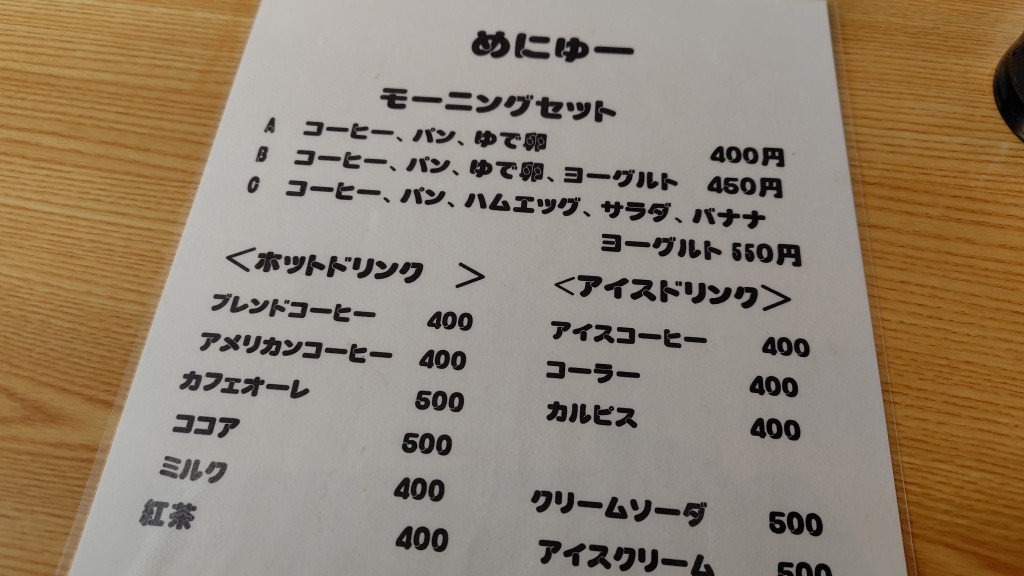 めにゅー
モーニングセット
A コーヒー、パン、ゆで卵 400円
B コーヒー、パン、ゆで卵、ヨーグルト 450円
C コーヒー、パン、ハムエッグ、サラダ、バナナ
ヨーグルト 550円
＜ホットドリンク ＞
ブレンドコーヒー 400
アメリカンコーヒー 400
カフェオーレ 500
ココア 500
ミルク 400
紅茶 400
＜アイスドリンク＞
アイスコーヒー 400
コーラー 400
カルピス 400
クリームソーダ 500
アイスクリーム 500